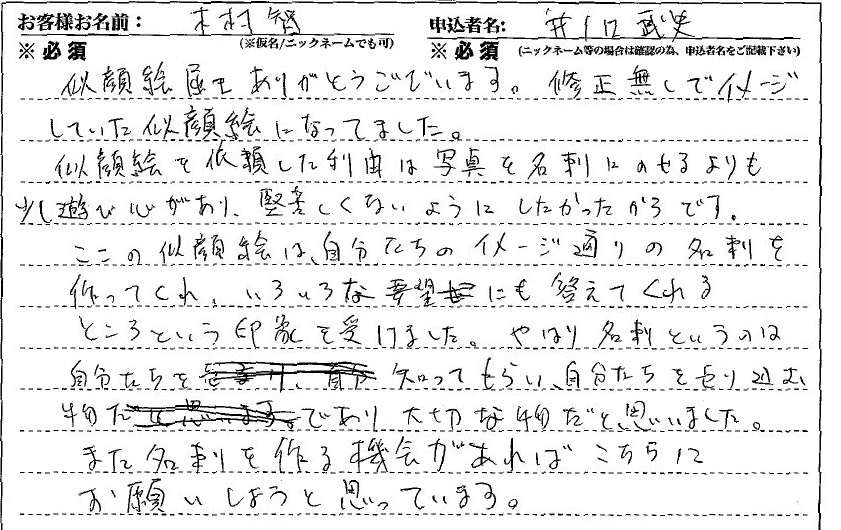 お客様お名前: 木村 智 申込者名: 井口 武史
※必須 (※仮名/ニックネームでも可) ※必須 (ニックネーム等の場合は確認の為、申込者名をご記載下さい)
似顔絵 ありがとうございます。修正無しでイメージ
していた似顔絵になってました。
似顔絵を依頼した利由は写真を名刺にのせるよりも
少し遊び心があり、堅苦しくないようにしたかったからです。
ここの似顔絵は、自分たちのイメージ通りの名刺を
作ってくれ、いろいろな要望にも答えてくれる
ところという印象を受けました。やはり名刺というのは
自分たちを知ってもらい、自分たちを売り込む
物だであり大切な物だと思いました。
また名刺を作る機会があればこちらに
お願いしようと思っています。